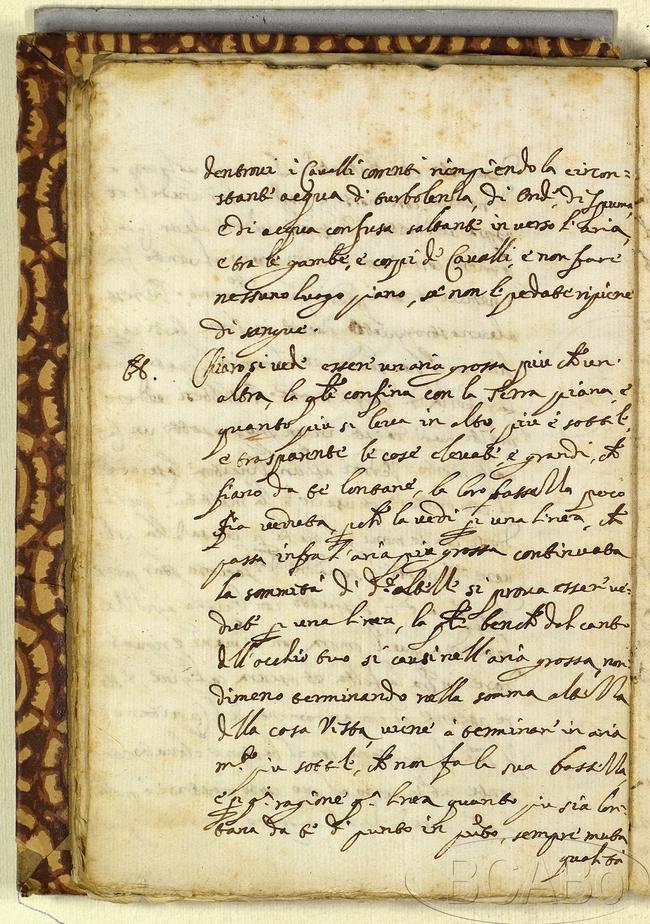 dentrovi i Cavalli correnti riempiendo la circon=
stante acqua di turbolenza, di Onde, di Spuma,
e di acqua confusa saltante inverso l'Aria,
e tra le gambe, e corpi de Cavalli, e non fare
nessuno luogo piano, se non le pedate ripiene
di sangue.
68. Chiaro si vede essere un aria grossa più ch̃ un
altra, la qle confina con la Terra piana, e
quanto più si leva in alto, più è sottile,
e trasparente le cose elevate, e grandi, ch̃
fiano da te lontane, la loro bassezza poco
fia veduta, pch̃ la vedi p una linea, ch̃
passa infra l'aria più grossa continuata
la sommità di de altezze si prova essere ve=
dute p una linea, la qle bench̃ dal canto
dell'occhio tuo si causi nell'aria grossa, non
dimeno terminando nella somma altezza
della cosa Vista, viene à terminare in aria
mto più sottile, ch̃ non fa la sua bassezza
e p qa ragione qa linea quanto più sia lon=
tana da te di punto in pũto, sempre muta
qualità
BCABo